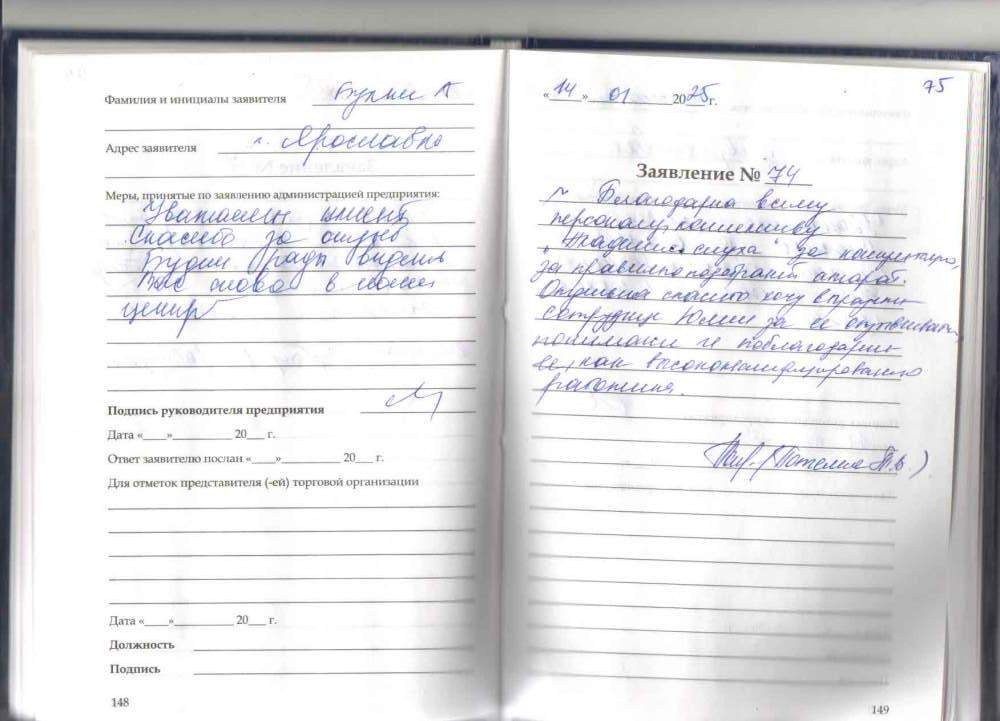 Фамилия и инициалы заявителя
Адрес заявителя г. Ярославль
Меры, принятые по заявлению администрацией предприятия:
Уважаемый клиент
Спасибо за отзыв
Будем рады видеть
Вас снова в нашем
центре
Подпись руководителя предприятия
Дата «____»__________ 20___ г.
Ответ заявителю послан «____»__________ 20___ г.
Для отметок представителя (-ей) торговой организации
Дата «____»__________ 20___ г.
Должность
Подпись
148
75
«14» 01 2025г.
Заявление № 74
Благодарна всему
персоналу
"Академии слуха" за
за правильно подобранный аппарат.
Отдельно спасибо хочу выразить
сотруднице Юлии за ее
понимание и поблагодарить
ее, как высококвалифицированного
работника.
149